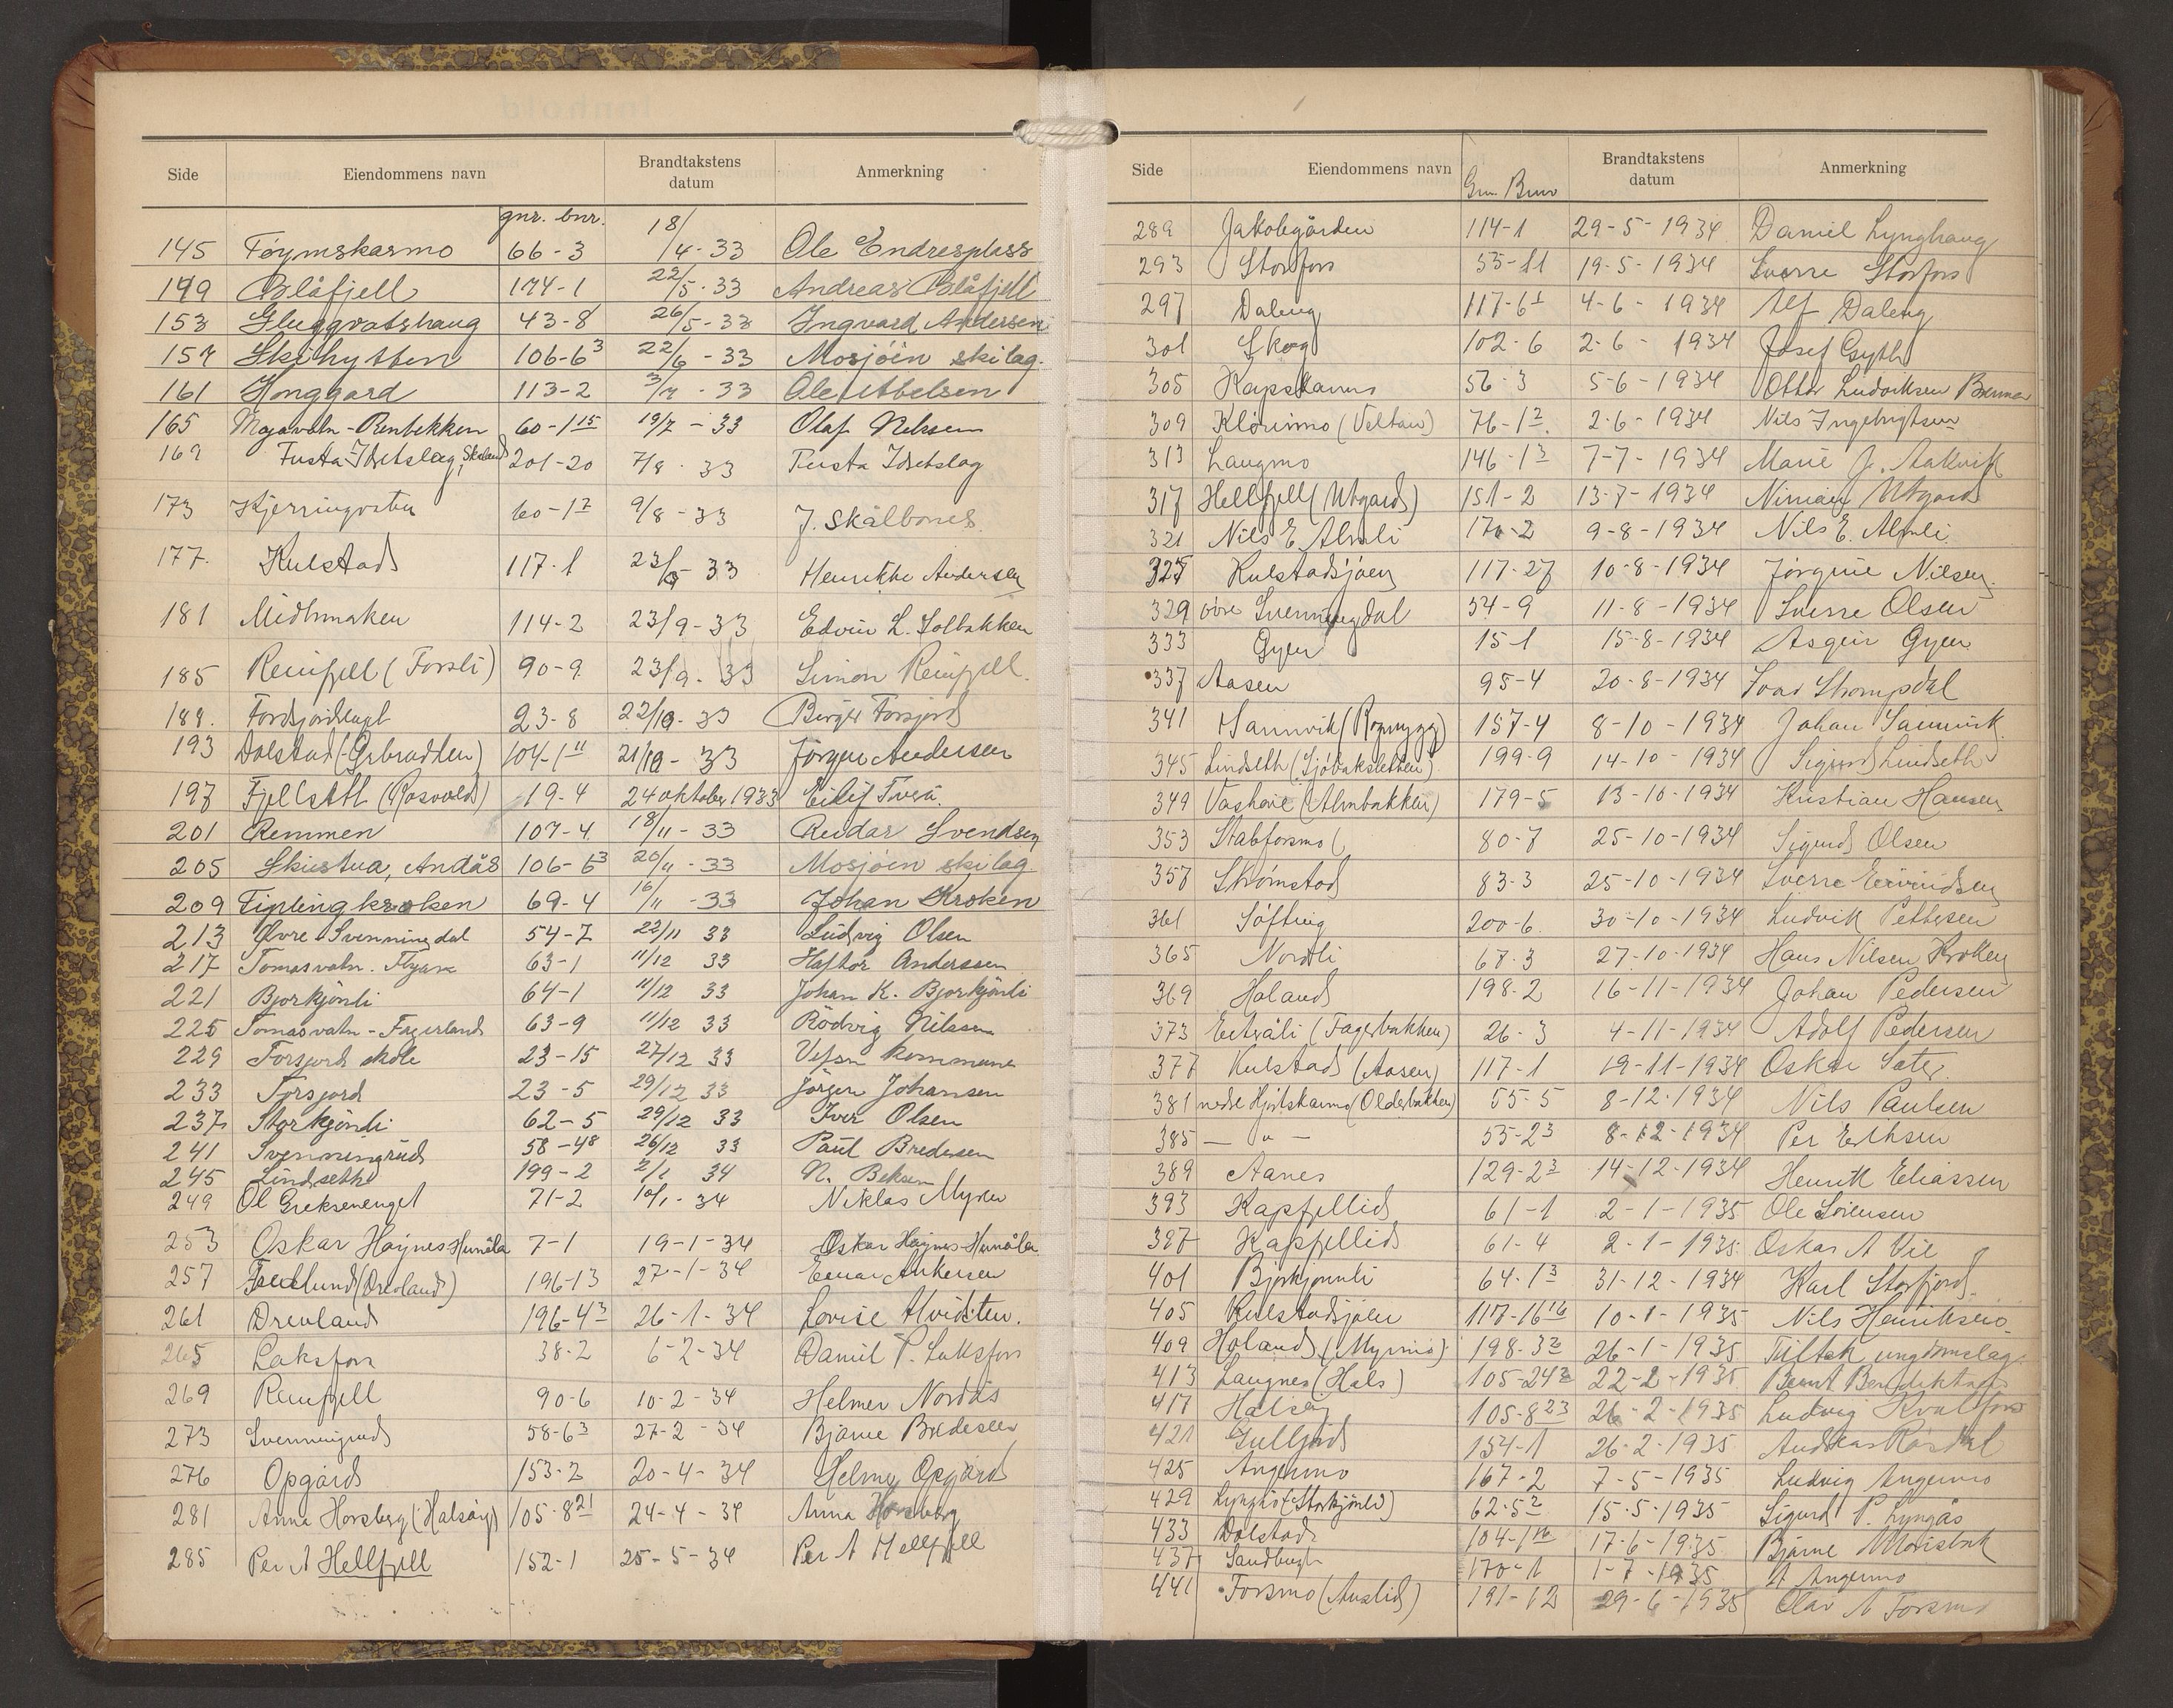 Side Eiendommens navn Brandtakstens datum Anmerkning
gnr. bnr.
145 Føymskarmo 66-3 18/4-33 Ole Endresplass
149 Blåfjell 174-1 22/5-33 Andreas Blåfjell
153 Gluggvatshaug 43-8 26/5-33 Ingvard Andersen
157 Skihytten 106-6³ 22/6-33 Mosjöen skilag.
161 Honggard 113-2 3/7-33 Ole Abelsen
165 Majavatn-Renbekken 60-1¹⁵ 19/7-33 Olaf Nelssen
169 Fusta Idretslag, 201-20 7/8-33 Fusta Idretslag
173 60-1⁷ 9/8-33 J. Skålbones
177. Kulstad 117-1 23/9-33 Henrikke Andersen
181 114-2 23/9-33 Edvin L. Solbakken
185 Reinfjell (Forsli) 90-9 23/9-33 Simon Reinfjell.
189. 23-8 22/10-33 Birger Forsjord
193 104-1¹¹ 21/10-33 Jørgen Andersen
197 Fjellseth (Rosvold) 19-4 24 oktober 1933 Eilif Tverå.
201 Remmen 107-4 18/11-33 Reidar Svendsen
205 Skistua, Andås 106-6³ 20/11-33 Mosjöen skilag
209 Tiplingkroken 69-4 16/11-33 Johan Kroken
213 Øvre Svenningdal 54-7 22/11 33 Ludvig Olsen
217 Tomasvatn. 63-1 11/12 33 Haftor Anderssen
221 Bjorkjönli 64-1 11/12 33 Johan K. Bjorkjönli
225 Tomasvatn-Fagerland 63-9 11/12 33 Rödvig Nilssen
229 Forsjord skole 23-15 27/12 33 Vefsn kommune
233 Forsjord 23-5 29/12 33 Jörgen Johansen
237 Storkjönli 62-5 29/12 33 Iver Olsen
241 Svenningrud 58-4⁸ 26/12 33 Paul Bredesen
245 Lindseth 199-2 2/1 34 N.
249 71-2 10/1-34 Niklas Myren
253 Oskar 7-1 19-1-34 Oskar
257 (Drevland) 196-13 27-1-34 Einar Ankersen
261 Drevland 196-4³ 26-1-34 Lovise Kvidsten.
265 Laksfors 38-2 6-2-34 Daniel P. Laksfors
269 Reinfjell 90-6 10-2-34 Helmer Nordås
273 Svenningrud 58-6³ 27-2-34 Bjarne Bredesen
276 Opgård 153-2 20-4-34 Helmer Opgård
281 Anna Horsberg (Halsøy) 105-8²¹ 24-4-34 Anna Horsberg
285 Per A Hellfjell 152-1 25-5-34 Per A Hellfjell
Side Eiendommens navn Brandtakstens datum Anmerkning
289 Jakobsgården 114-1 29-5-1934 Daniel Lynghaug
293 Storfors 55-11 19-5-1934 Sverre Storfors
297 Daleng 117-6¹ 4-6-1934 Alf Daleng
301 Skog 102-6 2-6-1934 Josef
305 Kapskarmo 56-3 5-6-1934 Ottar Ludviksen
309 76-1² 2-6-1934 Nils Ingebrigtsen
313 Langmo 146-1³ 7-7-1934 Marie J. Aakvik
317 Hellfjell (Utgård) 151-2 13-7-1934 Utgård
321 Nils E Almli 170-2 9-8-1934 Nils E. Almli
325 Kulstadsjøen 117-27 10-8-1934 Jörgine Nilsen.
329 övre Svenningdal 54-9 11-8-1934 Sverre Olsen
333 Gyen 15-1 15-8-1934 Asgeir Gyen
337 Aasen 95-4 20-8-1934 Ivar Strompdal
341 157-4 8-10-1934 Johan
345 Lindseth 199-9 14-10-1934 Sigurd Lindseth
349 (Almbakken) 179-5 13-10-1934 Kristian Hansen
353 Stabforsmo ( 80-7 25-10-1934 Sigurd Olsen
357 Strömstad 83-3 25-10-1934 Sverre Eivindsen
361 Söfting 200-6. 30-10-1934 Ludvik Pettersen
365 Nordli 67-3 27-10-1934 Hans Nilsen Kroken
369 Holand 198-2 16-11-1934 Johan Pedersen
373 Eiteråli (Fagerbakken) 26-3 4-11-1934 Adolf Pedersen
377 Kulstad (Aasen) 117-1 19-11-1934 Oskar
381 nedre Hjortskarmo (Olderbakken) 55-5 8-12-1934 Nils Paulsen
385 — " — 55-2³ 8-12-1934 Per Eriksen
389 Aanes 129-2³ 14-12-1934 Henrik Eliassen
393 Kapfjellid 61-1 2-1-1935 Ole Sörensen
397 Kapfjellid 61-4 2-1-1935 Oskar A
401 Bjorkjonnli 64-1³ 31-12-1934 Karl Storfjord
405 Kulstadsjøen 117-16¹⁶ 10-1-1935 Nils Henriksen
409 Holand (Myrmo) 198-3² 26-1-1935 ungdomslag.
413 Langnes (Hals) 105-24² 22-2-1935 Bernt Benediktsen
417 Halsøy 105-8²³ 26-2-1935 Ludvig Kvalfors
421 154-1 26-2-1935 Andreas
425 Angermo 167-2 7-5-1935 Ludvig Angermo
429 Lyngås (Storkjönli) 62-5² 15-5-1935 Sigurd P. Lyngås
433 Dolstad 17-6-1935 Bjarne
437 170-1 1-7-1935 A Angermo
441 Forsmo (Auslid) 191-12 29-6-1935 Olav A Forsmo